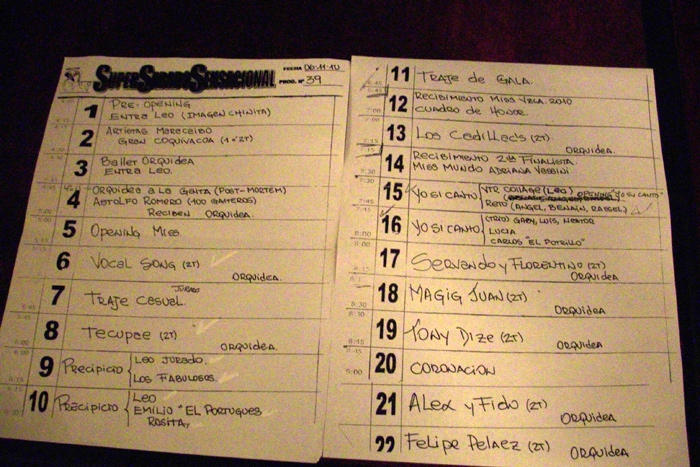 SUPER SABADO SENSACIONAL
FECHA 06-11-10
PROG. Nº 39
1 PRE-OPENING
ENTRA LEO (IMAGEN CHINITA)
2 ARTISTAS MARACAIBO
GRAN COQUIVACOA (1=2T)
3 BALLET ORQUIDEA
ENTRA LEO.
4 ORQUIDEA A LA GAITA (POST-MORTEM)
ASTOLFO ROMERO (100 GAITEROS)
RECIBEN ORQUIDEA.
5 OPENING MISS.
6 VOCAL SONG (2T)
ORQUIDEA.
JURADO
7 TRAJE CASUAL.
8 TECUPAE (2T)
ORQUIDEA.
9 PRECIPICIO LEO JURADO.
LOS FABULOSOS.
10 PRECIPICIO LEO
EMILIO "EL PORTUGUES
ROSITA,
11 TRAJE DE GALA.
12 RECIBIMIENTO MISS VZLA. 2010
CUADRO DE HONOR.
13 LOS CADILLACS (2T)
ORQUIDEA.
14 RECIBIMIENTO 2DA FINALISTA.
MISS MUNDO ADRIANA VASINI
15 YO SI CANTO VTR COLLAGE (LEO) OPENING "YO SI CANTO"
RETO (ANGEL, BENAIN, RASSEL)
16 YO SI CANTO (TRIO GABY, LUIS, NESTOR
LUCIA
CARLOS "EL POTRILLO"
17 SERVANDO Y FLORENTINO (2T)
ORQUIDEA
18 MAGIG JUAN (2T)
ORQUIDEA
19 TONY DIZE (2T)
ORQUIDEA
20 CORONACION
21 ALEX Y FIDO (2T)
ORQUIDEA
22 FELIPE PELAEZ (2T)
ORQUIDEA